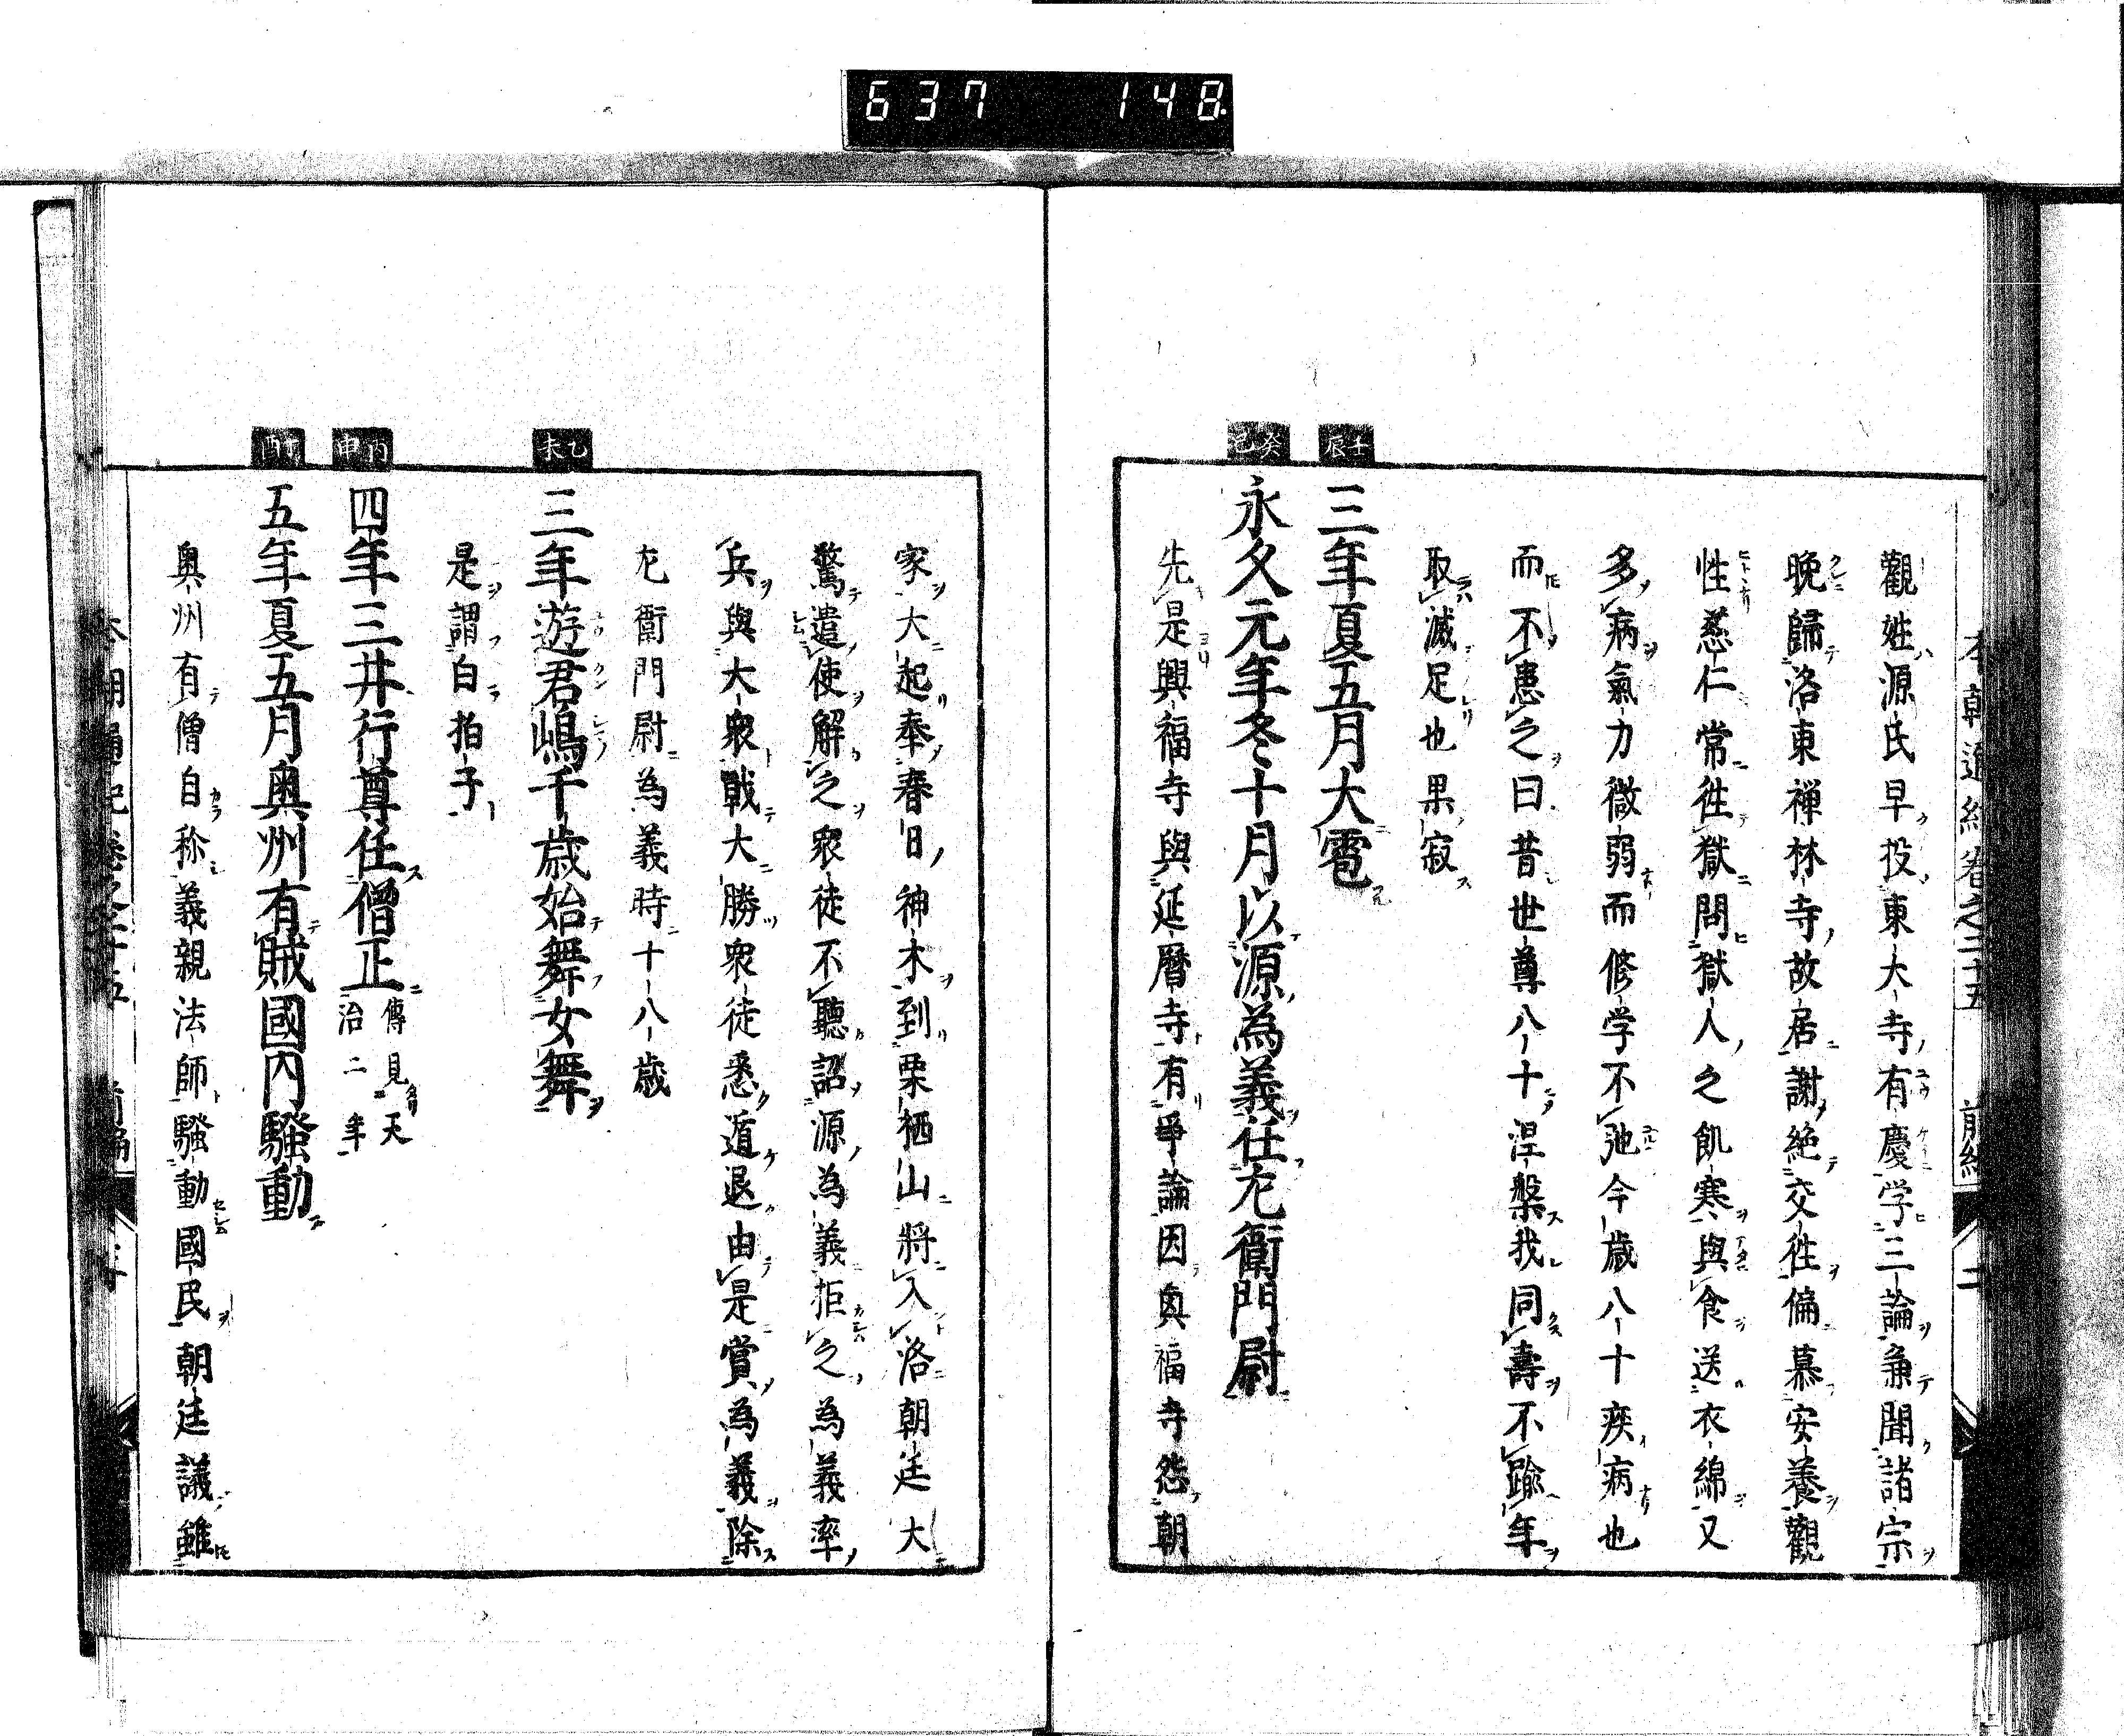 637 148
本朝通紀卷之二十五 前編 二
觀姓源氏早投東大寺有慶学三論兼聞諸宗
晩歸洛東禅林寺故居謝絶交徃偏慕安養觀
性慈仁常徃獄問獄人之飢寒與食送衣綿又
多病氣力微弱而修学不弛今歳八十疾病也
而不患之曰昔世尊八十涅槃我同壽不踰年
取滅足也果寂
壬辰
三年夏五月大雹
癸巳
永久元年冬十月以源為義任左衛門尉
先是興福寺與延暦寺有爭論因奥福寺怨朝
家大起奉春日神木到栗栖山將入洛朝廷大
驚遣使解之衆徒不聽詔源為義拒之為義率
兵與大衆戰大勝衆徒悉遁退由是賞為義除
左衛門尉為義時十八歳
乙未
三年遊君嶋千歳始舞女舞
是謂白拍子
丙申
四年三井行尊任僧正 傳見天治二年
丁酉
五年夏五月奥州有賊國内騷動
奥州有僧自称義親法師騷動國民朝廷議雖